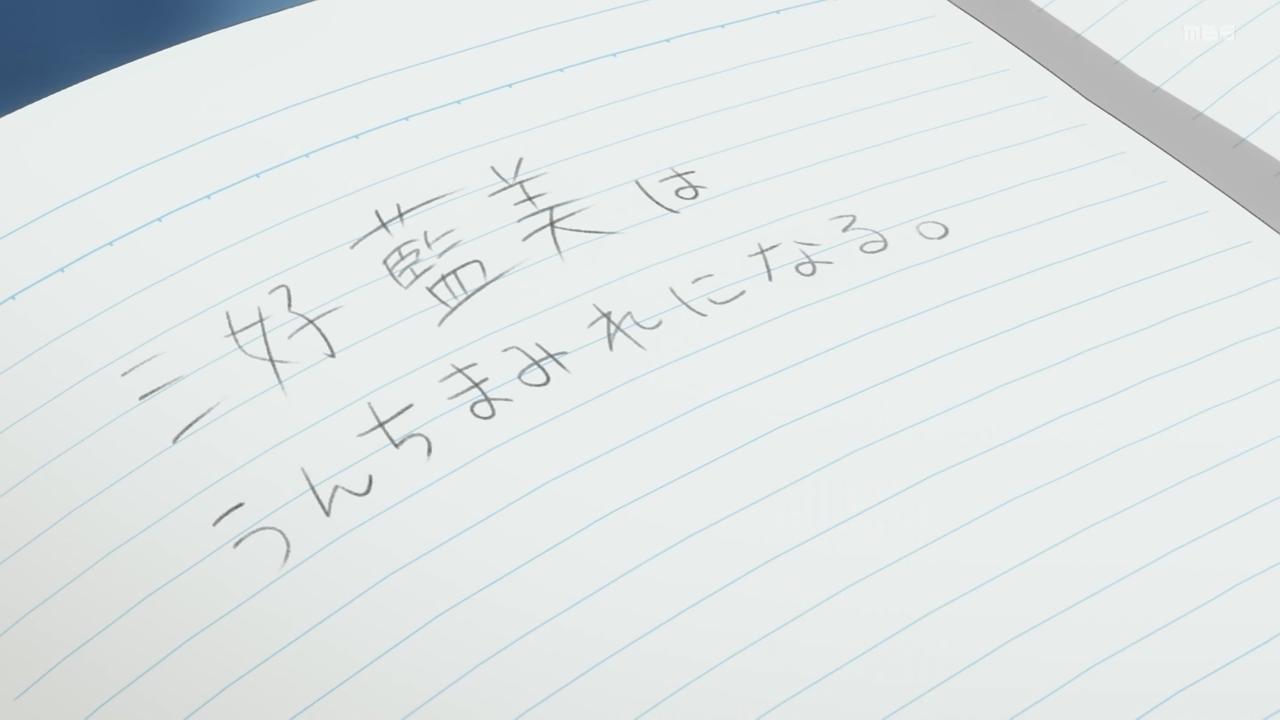 MBS
三好藍美は
うんちまみれになる。